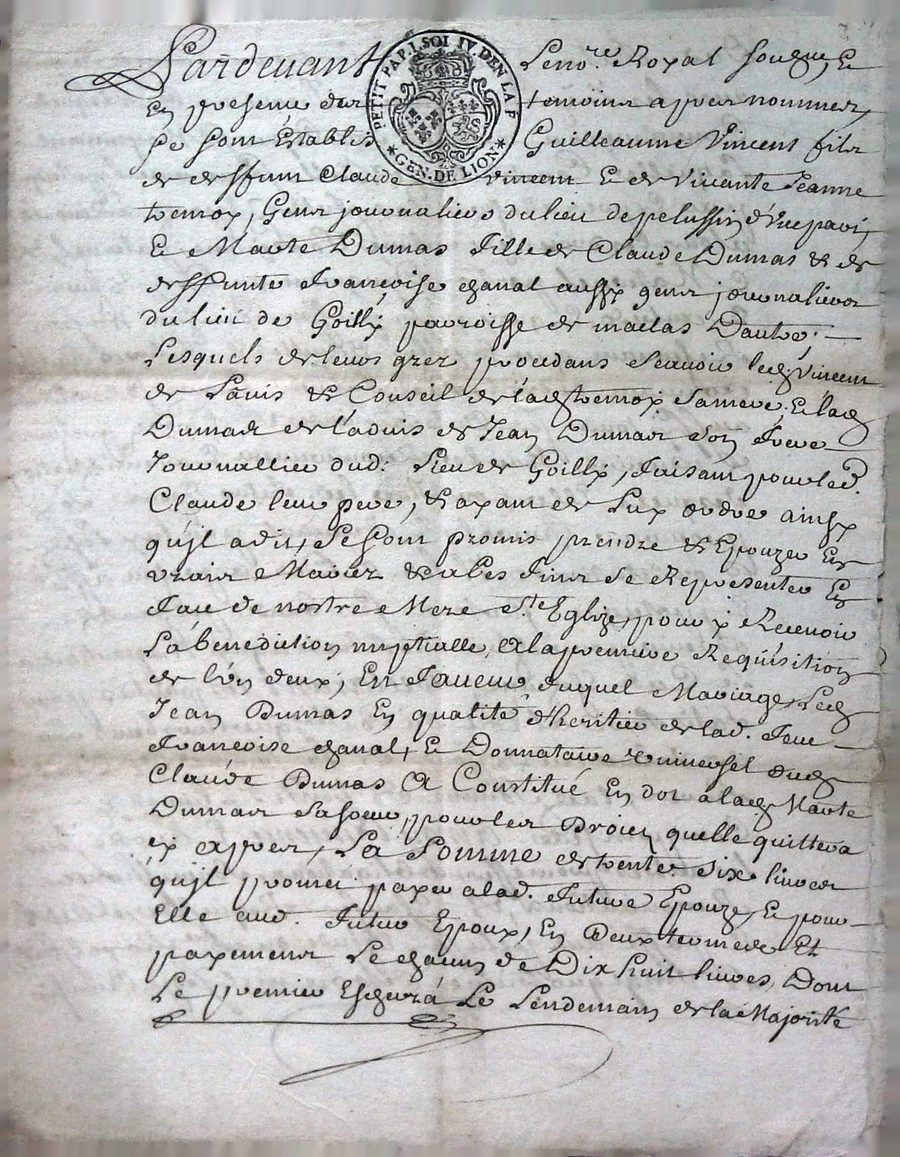 PETIT PAP. I. SOL IV. DEN LA F
GEN. DE LION
Pardevant Le no.re Royal sousig.e, Et
En presence des temoins apres nommes,
se sont Etablis Guilleaume Vincent fils
de deffunt Claude vincent Et de vivante Jeanne
Gens journaliers du lieu de pelussin d'une part,
Et Marte Dumas fille de Claude Dumas & de
deffunte francoise chanal aussy gens journaliers
du lieu de Goilly parroisse de maclas D'autre.
Lesquels de leurs grez procedans scavoir led. Vincent
de L'avis & Conseil de lad. sa mere, Et lad.
Dumas de l'advis de Jean Dumas son frere
Journallier dud: Lieu de Goilly, faisant pour led.
Claude leur pere, & ayant de Luy ordre ainsy
qu'jl a dit, se sont promis prendre & Epouzer En
vrais Mariez & a ces fins se Representer En
face de nostre Mere S.te Eglize, pour y Recevoir
La benediction nuptialle, a la premiere Requisition
de l'un deux; En faveur duquel Mariage, Led.
Jean Dumas En qualité d'heritier de lad. feue
francoise chanal, Et Donnataire universel dud.
Claude Dumas A Constitué En dot a lad. Marte
Dumas sa soeur, pour les Droits quelle quittera
cy apres, La Somme de trente six livres
qu'jl promet payer a lad. future Epouze, Et pour
Elle aud. futur Epoux, En Deux termes Et
payements Le chacun de Dix huit livres, Dont
Le premier Echerrá Le Lendemain de la Majorité